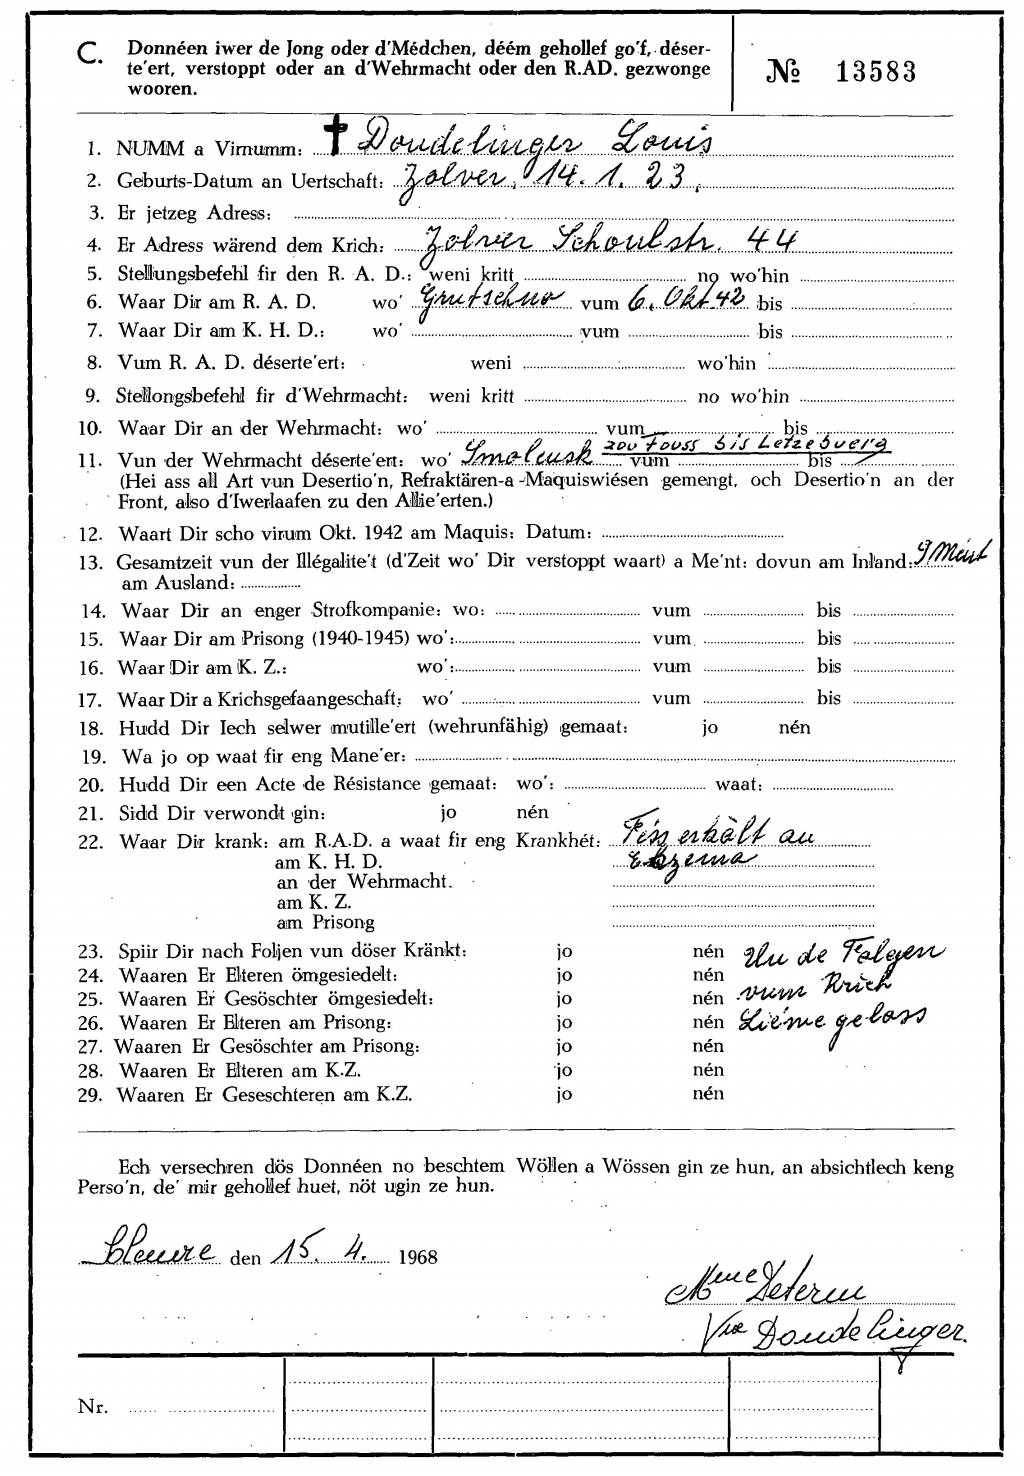 C. Donnéen iwer de Jong oder d'Médchen, déém gehollef go'f, déser-
te'ert, verstoppt oder an d'Wehrmacht oder den R.AD. gezwonge
wooren.
№ 13583
1. NUMM a Virnumm: ✝ Dondelinger Louis
2. Geburts-Datum an Uertschaft: Zolver, 14. 1. 23.
3. Er jetzeg Adress:
4. Er Adress wärend dem Krich: Zolver Schoulstr. 44
5. Stellungsbefehl fir den R. A. D.: weni kritt no wo'hin
6. Waar Dir am R. A. D. wo' Grutschno vum 6. Okt. 42 bis
7. Waar Dir am K. H. D.: wo' vum bis
8. Vum R. A. D. déserte'ert: weni wo'hin
9. Stellongsbefehl fir d'Wehrmacht: weni kritt no wo'hin
10. Waar Dir an der Wehrmacht: wo' vum bis
11. Vun der Wehrmacht déserte'ert: wo' Smolensk zou Fouss bis Letzebuerg vum bis
(Hei ass all Art vun Desertio'n, Refraktären-a -Maquiswiésen gemengt, och Desertio'n an der
Front, also d'Iwerlaafen zu den Allie'erten.)
12. Waart Dir scho virum Okt. 1942 am Maquis: Datum:
13. Gesamtzeit vun der Illégalite't (d'Zeit wo' Dir verstoppt waart) a Me'nt: dovun am Inland: 9 Meint
am Ausland:
14. Waar Dir an enger Strofkompanie: wo: vum bis
15. Waar Dir am Prisong (1940-1945) wo': vum bis
16. Waar Dir am K. Z.: wo': vum bis
17. Waar Dir a Krichsgefaangeschaft: wo' vum bis
18. Hudd Dir Iech selwer mutille'ert (wehrunfähig) gemaat: jo nén
19. Wa jo op waat fir eng Mane'er:
20. Hudd Dir een Acte de Résistance gemaat: wo': waat:
21. Sidd Dir verwondt gin: jo nén
22. Waar Dir krank: am R.A.D. a waat fir eng Krankhét: Féiss erkält an
am K. H. D. Ekzema
an der Wehrmacht.
am K. Z.
am Prisong
23. Spiir Dir nach Foljen vun döser Kränkt: jo nén Un de Folgen
24. Waaren Er Elteren ömgesiedelt: jo nén
25. Waaren Er Gesöschter ömgesiedelt: jo nén vum Krich
26. Waaren Er Elteren am Prisong: jo nén Liéme geloss
27. Waaren Er Gesöschter am Prisong: jo nén
28. Waaren Er Elteren am K.Z. jo nén
29. Waaren Er Geseschteren am K.Z. jo nén
Ech versechren dös Donnéen no beschtem Wöllen a Wössen gin ze hun, an absichtlech keng
Perso'n, de' mir gehollef huet, nöt ugin ze hun.
den 15. 4. 1968
Mme Determ
Vve Dondelinger.
Nr.